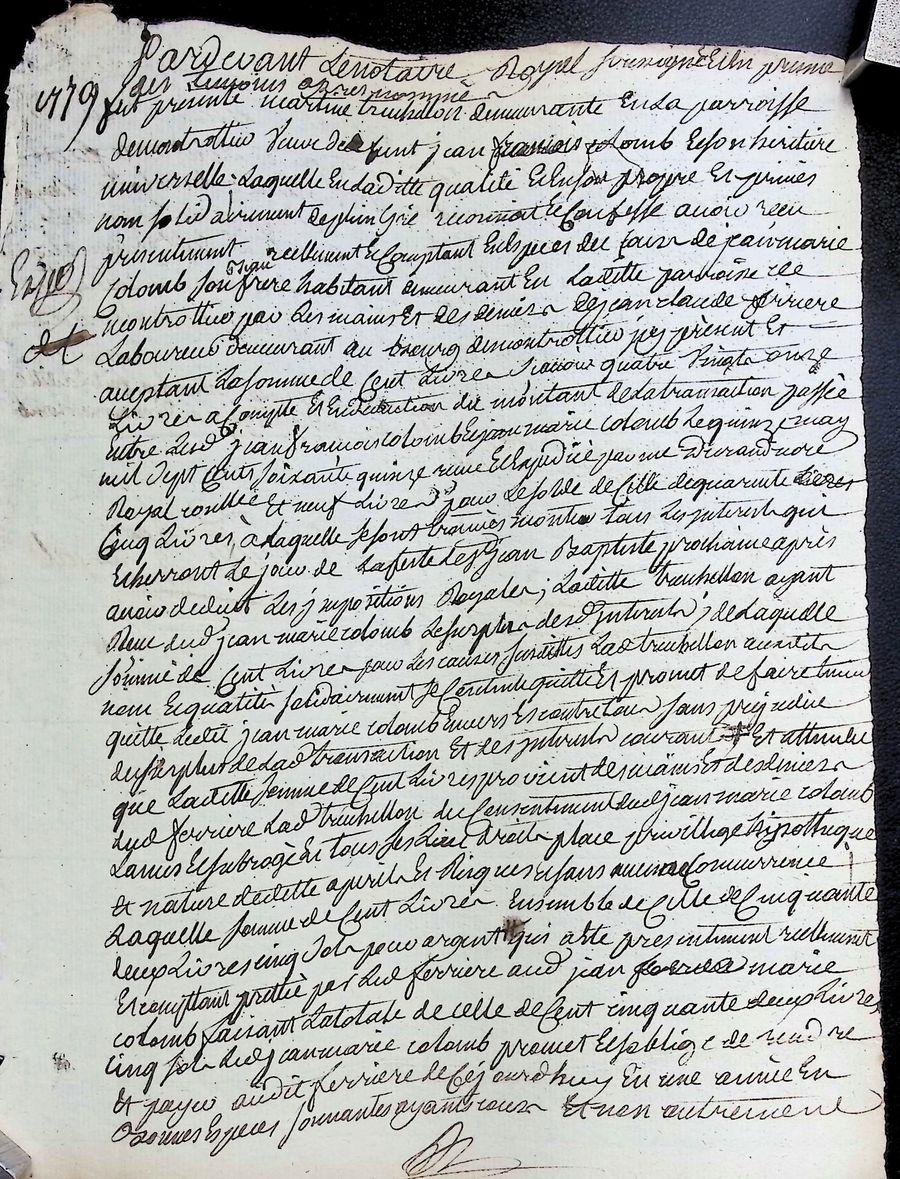 Pardevant Lenotaire Royal soussigné Et En presence
des temoins apres nommés
1779
fut presente martine trechillon demeurante En La parroisse
demontrottier Veuve de defunt jean francois colomb Et son heritiere
universelle Laquelle En Laditte qualité Et En son propre Et privés
nom solidairement de plein Gré reconnoit Et Confesse avoir recu
presentement reellement Et Comptant En Especes du jour de jean marie
Expé
Colomb son frere habitant demeurant En Laditte parroisse de
montrottier par Les mains Et des deniers de jean claude ferriere
Laboureur demeurant au bourg demontrottier icy present Et
acceptant La somme de Cent Livres scavoir quatre vingt onze
Livres a Compte Et En deduction du montant de La transaction passée
Entre Lesd jean francois colomb Et jean marie colomb Le quinze may
mil Sept Cents soixante quinze recue Et Expediée par me Durand nore
Royal Et neuf Livres pour Le solde de Celle de quarente
Cinq Livres a Laquelle se sont trouvés monter tous Les interets qui
Echerront Le jour de La feste de St jean Baptiste prochaine après
avoir deduit Les impositions Royales, Laditte trechillon ayant
Recu dud jean marie colomb Le surplus desd interets, de Laquelle
somme de Cent Livres pour Les causes susdittes Lad trechillon auxdits
nom Et qualités solidairement se Contente quitte Et promet de faire tenir
quitte Ledit jean marie colomb Envers Et contre tous sans prejudice
du surplus de Lad transaction Et des interets courant + Et attendu
que Laditte somme de Cent Livres provient des mains Et des deniers
dud ferriere Lad trechillon du Consentement dud jean marie colomb
La mis Et subrogé En tous ses Lieu Droits place privillege hypotheque
Et nature de dette a perils Et Risques Et sans aucune Concurrence
Laquelle somme de Cent Livres Ensemble de Celle de Cinquante
deux Livres cinq sols pour argent qui a ete presentement reellement
Et comptant prettée par Led ferriere aud jean marie
colomb faisant La totale de celle de Cent cinquante deux Livres
cinq sols Led jean marie colomb promet Et s'oblige de rendre
Et payer audit ferriere de Cejourdhuy En une année En
Bonnes Especes sonnantes ayant cours Et non autrement